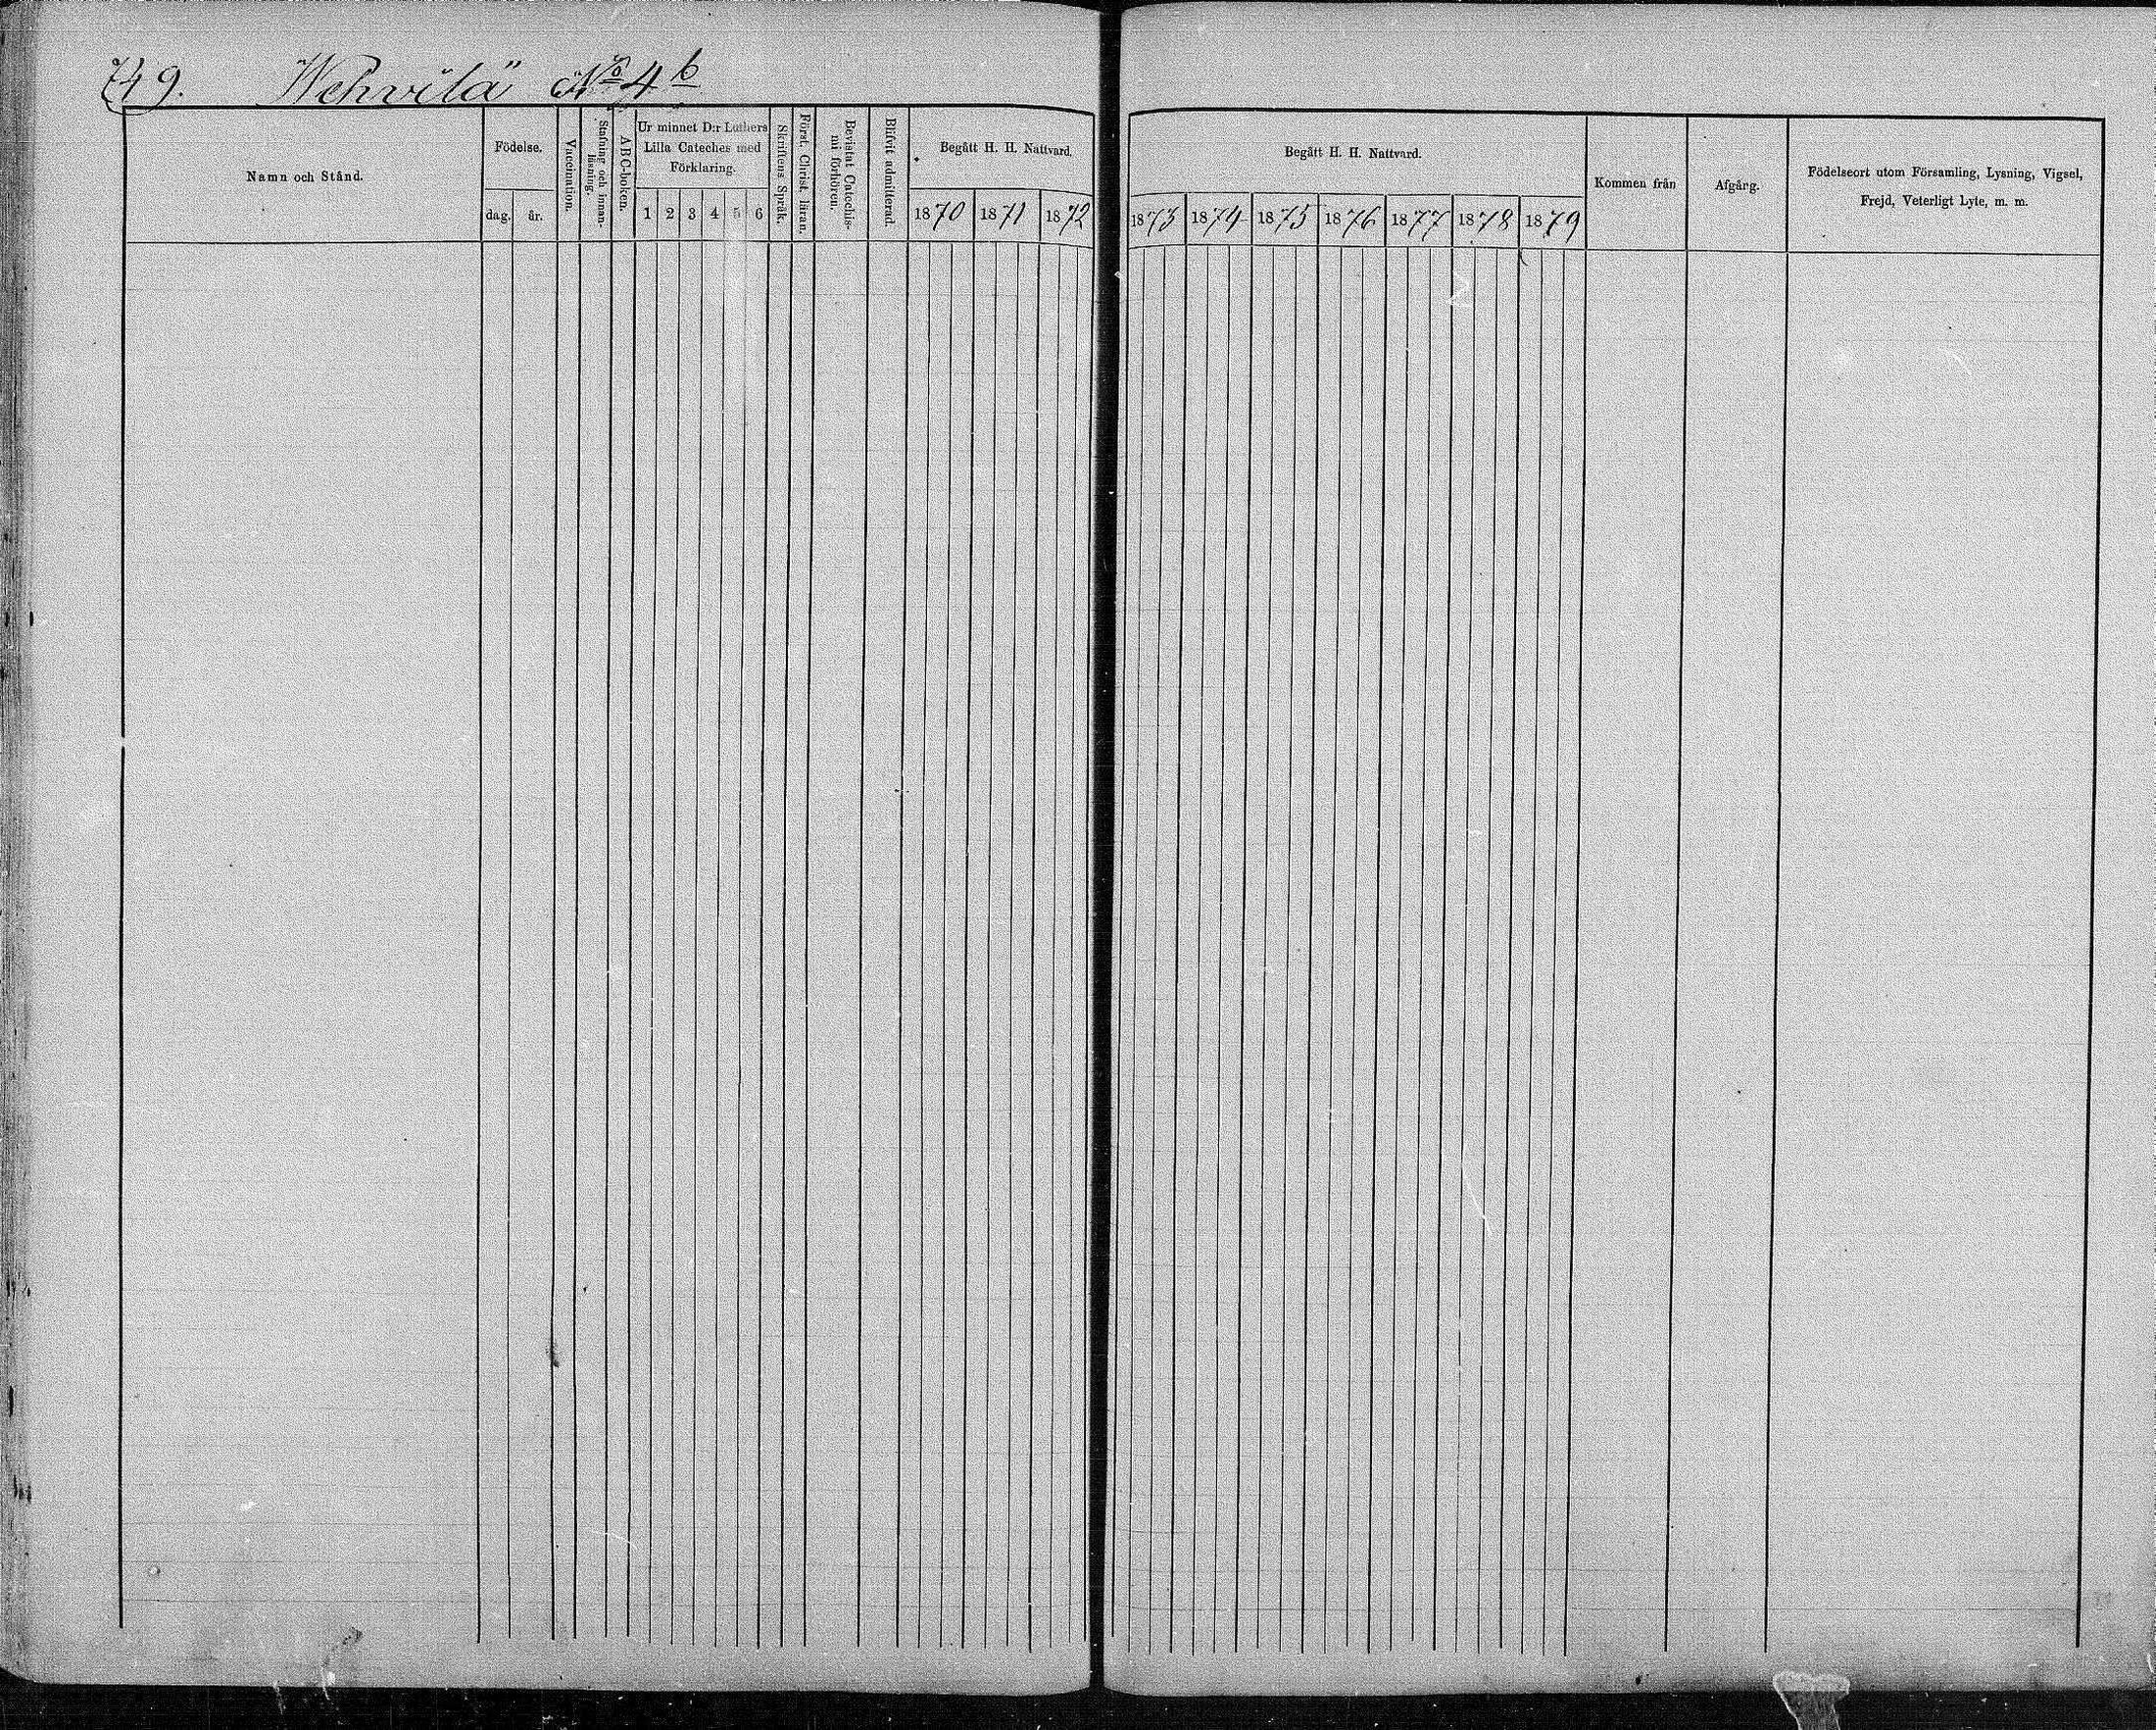 749. Wehvilä Nº 4 b
Namn och Stånd.
Födelse.
dag. år.
Vaccination.
Stafning och innan-
läsning.
ABC-boken.
Ur minnet D:r Luthers
Lilla Cateches med
Förklaring.
1 2 3 4 5 6
Skriftens Språk.
Först. Christ. läran.
Bevistat Catechis-
mi förhören.
Blifvit admitterad.
Begått H. H. Nattvard.
1870 1871 1872
Begått H. H. Nattvard.
1873 1874 1875 1876 1877 1878 1879
Kommen från
Afgång.
Födelseort utom Församling, Lysning, Vigsel,
Frejd, Veterligt Lyte, m. m.